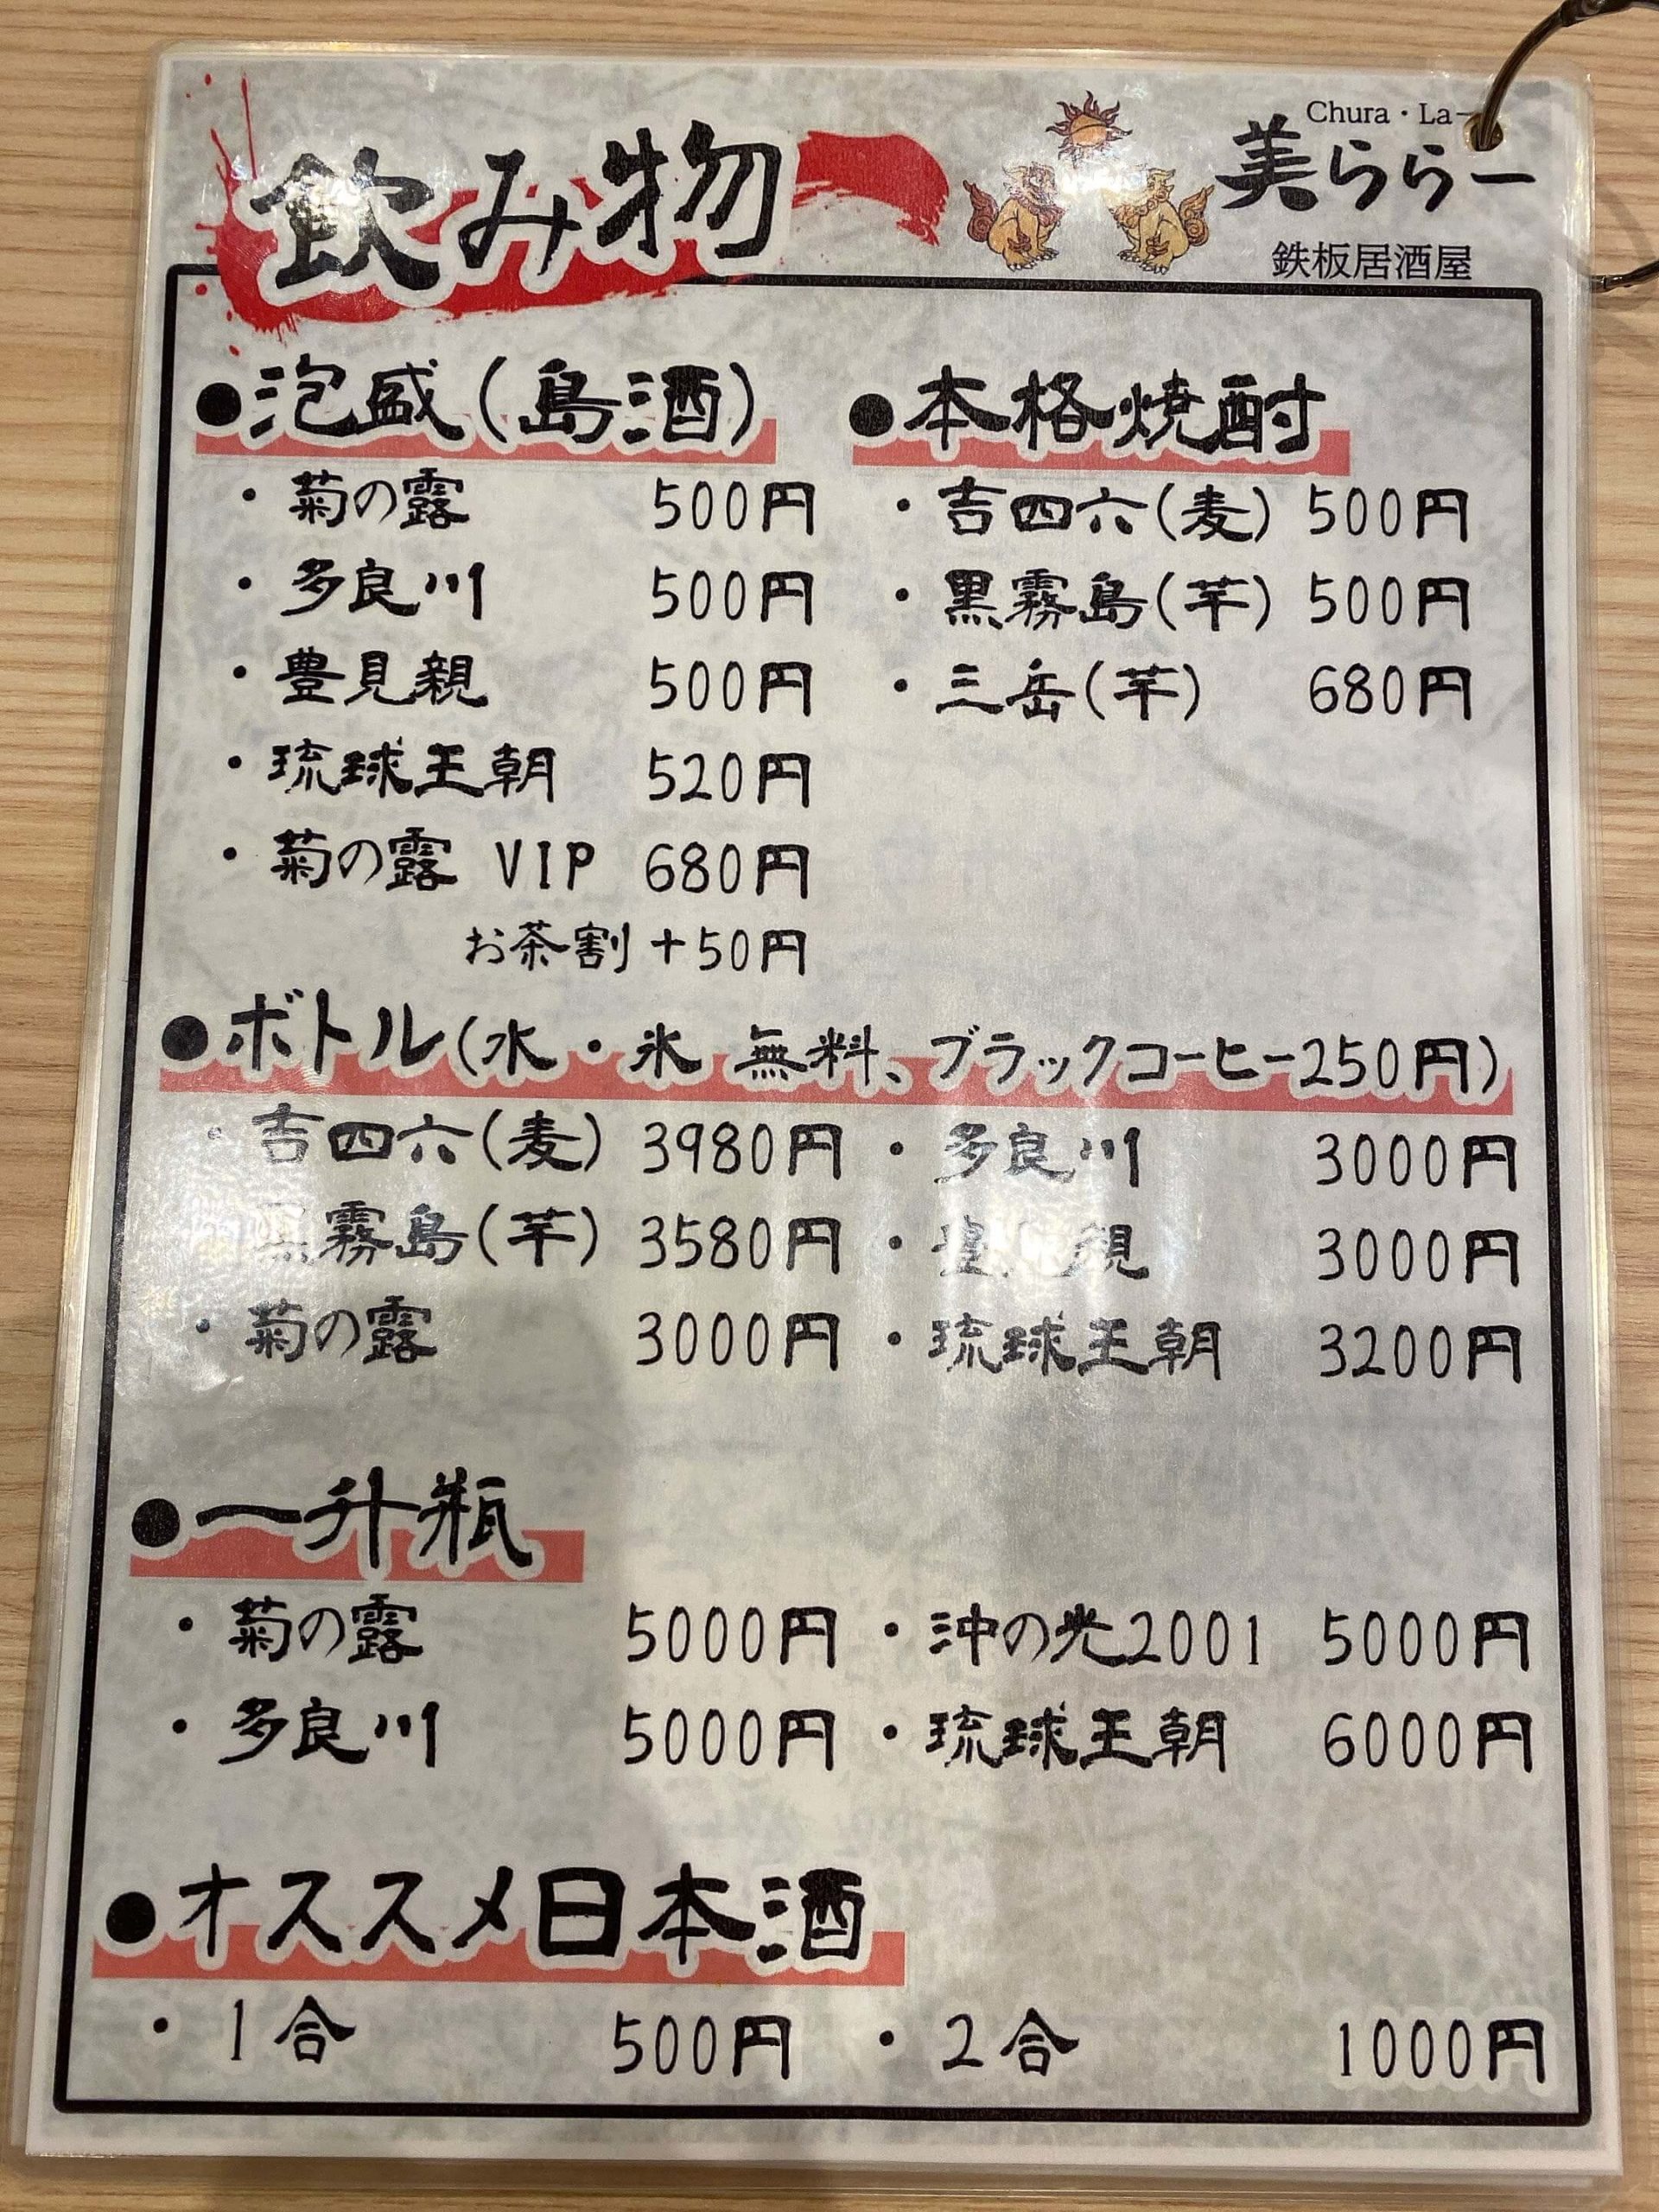 Chura・La-
飲み物
美ららー
鉄板居酒屋
●泡盛(島酒)
・菊の露 500円
・多良川 500円
・豊見親 500円
・琉球王朝 520円
・菊の露 VIP 680円
お茶割 +50円
●本格焼酎
・吉四六(麦) 500円
・黒霧島(芋) 500円
・三岳(芋) 680円
●ボトル(水・氷 無料、ブラックコーヒー250円)
・吉四六(麦) 3980円
黒霧島(芋) 3580円
・菊の露 3000円
・多良川 3000円
・豊見親 3000円
・琉球王朝 3200円
●一升瓶
・菊の露 5000円
・多良川 5000円
・沖の光2001 5000円
・琉球王朝 6000円
●オススメ日本酒
・1合 500円
・2合 1000円